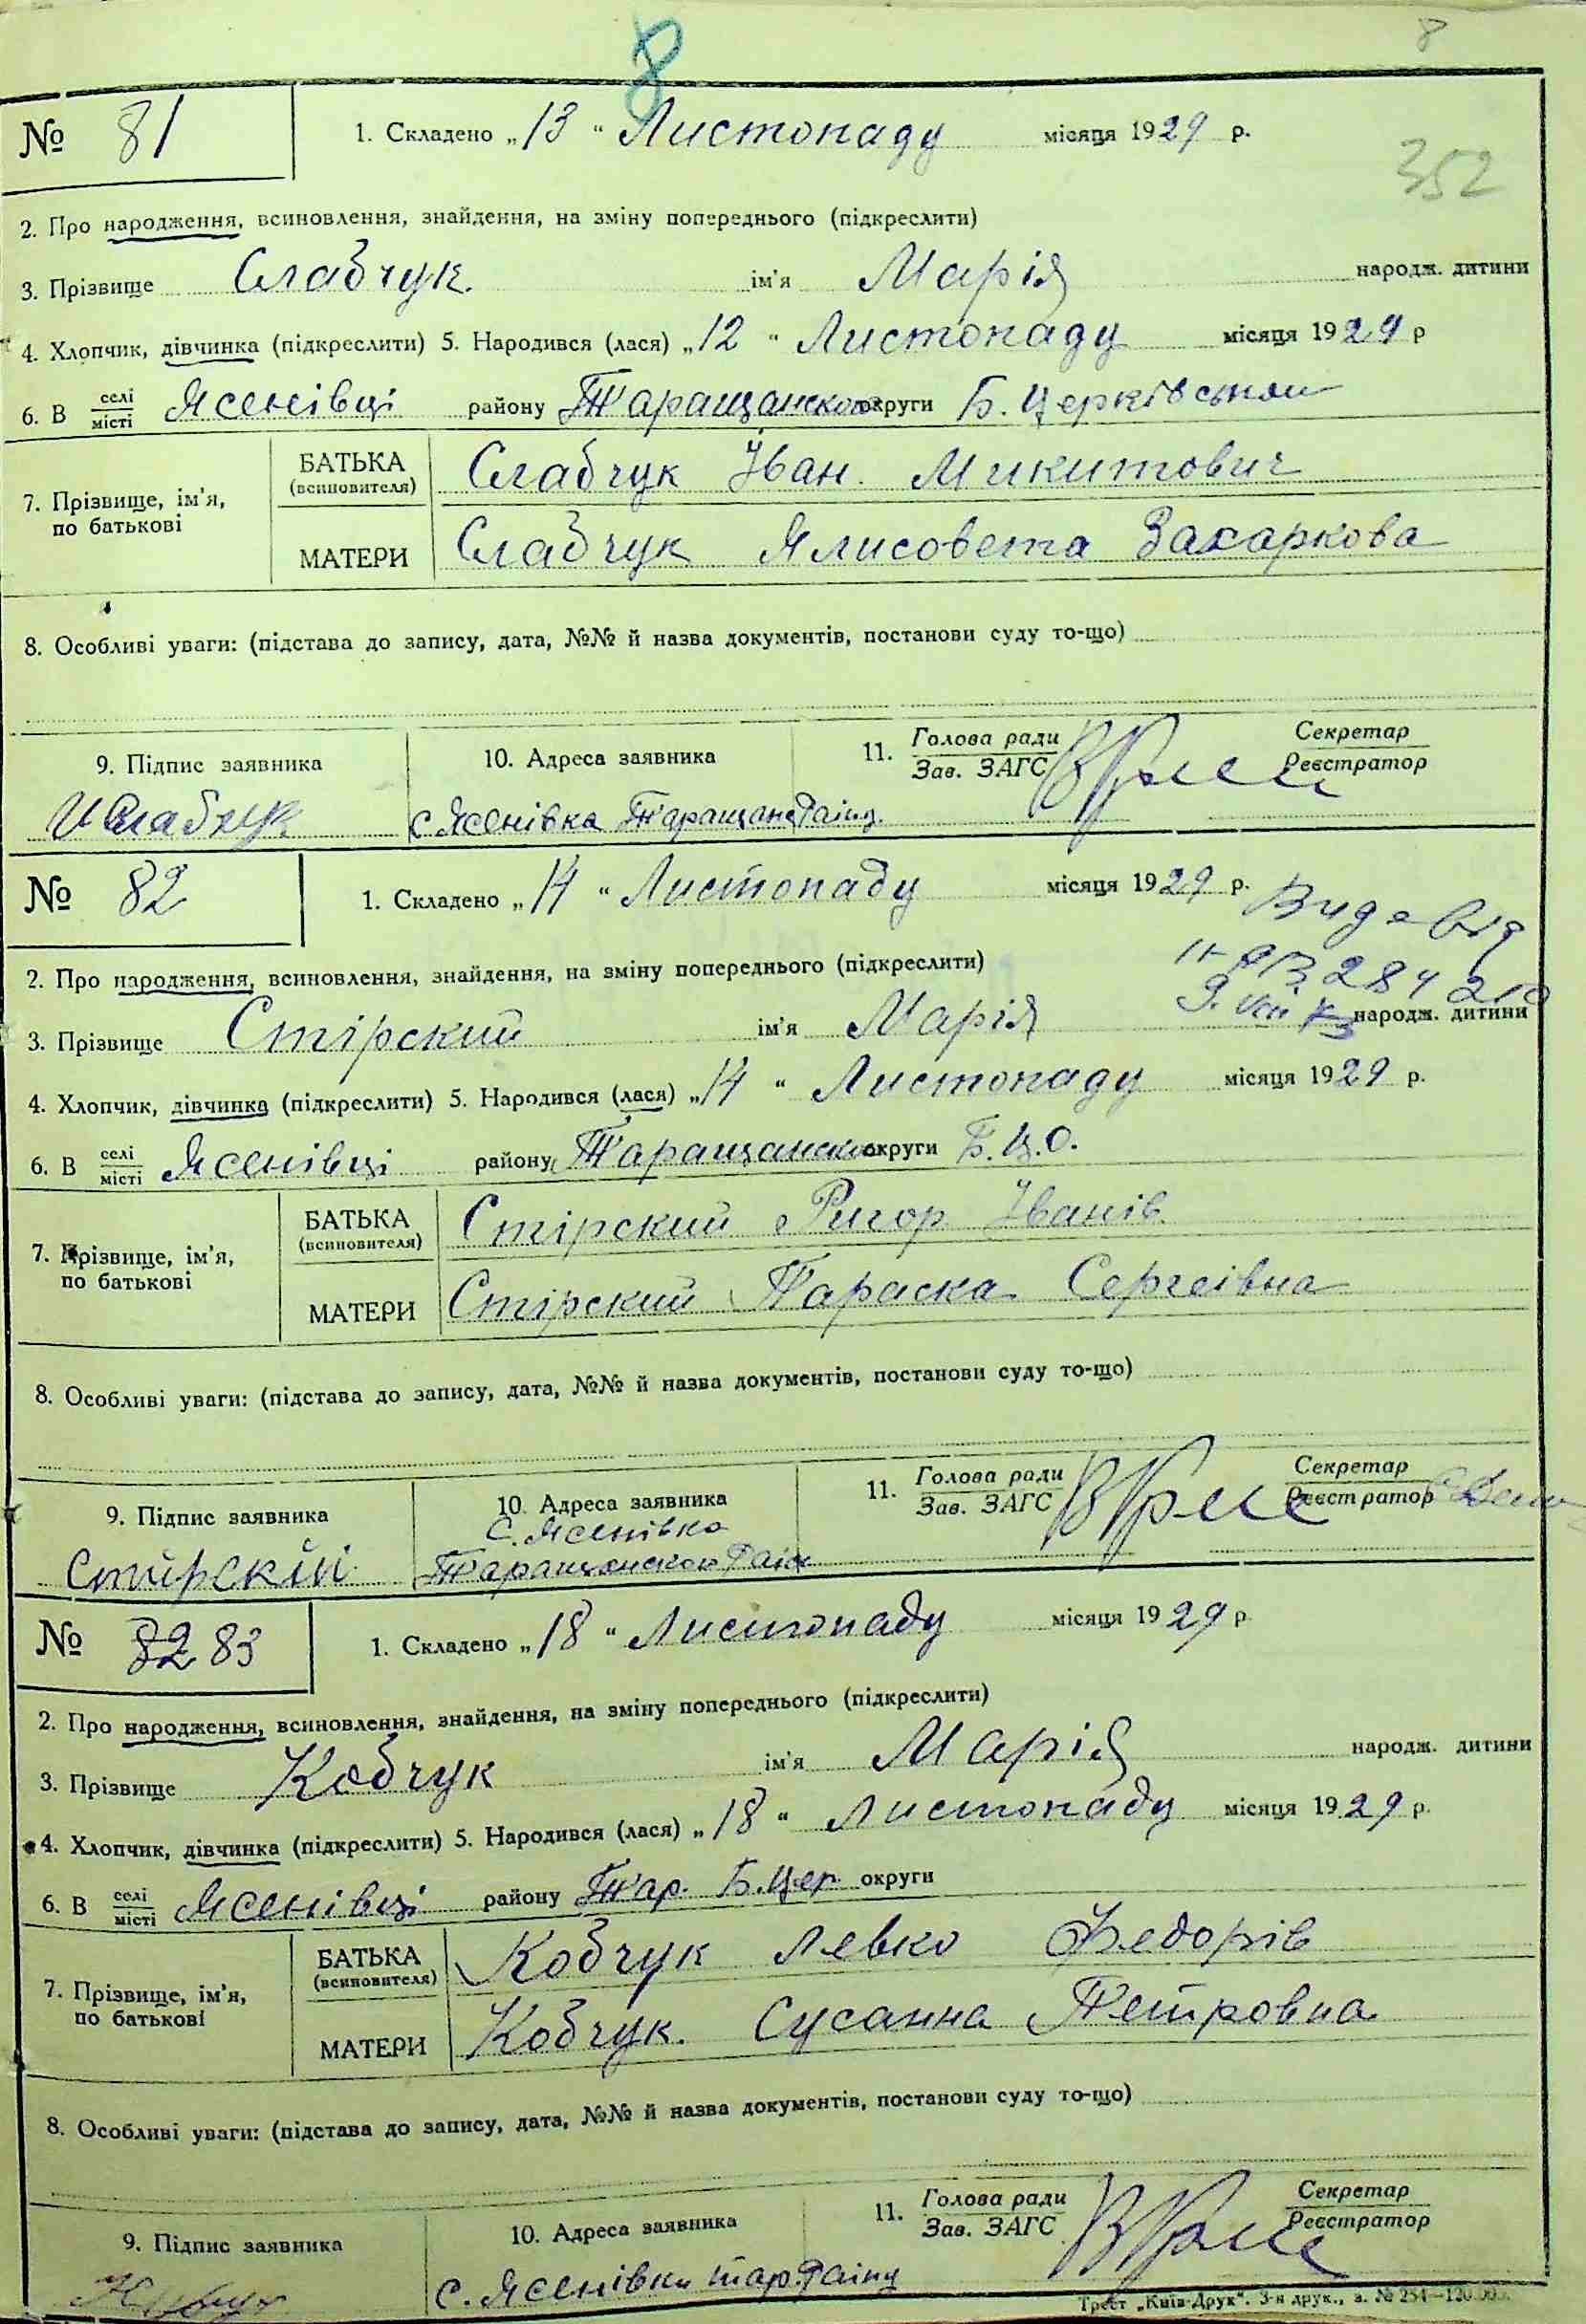 8
8
№ 81
1. Складено „13“ Листопаду місяця 1929 р.
352
2. Про народження, всиновлення, знайдення, на зміну попереднього (підкреслити)
3. Прізвище Слабчук ім'я Марія народж. дитини
4. Хлопчик, дівчинка (підкреслити) 5. Народився (лася) „12“ Листопаду місяця 1929 р
6. В селі/місті Ясенівці району Таращанского округи Б. Церківськой
7. Прізвище, ім'я, по батькові
БАТЬКА (всиновителя) Слабчук Іван Микитович
МАТЕРИ Слабчук Ялисовета Захаркова
8. Особливі уваги: (підстава до запису, дата, №№ й назва документів, постанови суду то-що)
9. Підпис заявника 10. Адреса заявника 11. Голова ради/Зав. ЗАГС Секретар/Реєстратор
И Слабчук с. Ясенівка Таращан.
№ 82
1. Складено „14“ Листопаду місяця 1929 р.
284
2. Про народження, всиновлення, знайдення, на зміну попереднього (підкреслити)
3. Прізвище Стірский ім'я Марія народж. дитини
4. Хлопчик, дівчинка (підкреслити) 5. Народився (лася) „14“ Листопаду місяця 1929 р.
6. В селі/місті Ясенівці району Таращанского округи Б.Ц.О.
7. Прізвище, ім'я, по батькові
БАТЬКА (всиновителя) Стірский Ригор Іванів
МАТЕРИ Стірский Параска Сергеівна
8. Особливі уваги: (підстава до запису, дата, №№ й назва документів, постанови суду то-що)
9. Підпис заявника 10. Адреса заявника 11. Голова ради/Зав. ЗАГС Секретар/Реєстратор
с. Ясенівка
Стирскій Таращанского
№ 82 83
1. Складено „18“ Листопаду місяця 1929 р
2. Про народження, всиновлення, знайдення, на зміну попереднього (підкреслити)
3. Прізвище Кобчук ім'я Марія народж. дитини
4. Хлопчик, дівчинка (підкреслити) 5. Народився (лася) „18“ Листопаду місяця 1929 р.
6. В селі/місті Ясенівці району Тар. Б.Цер округи
7. Прізвище, ім'я, по батькові
БАТЬКА (всиновителя) Кобчук Левко Федорів
МАТЕРИ Кобчук Сусанна Петровна
8. Особливі уваги: (підстава до запису, дата, №№ й назва документів, постанови суду то-що)
9. Підпис заявника 10. Адреса заявника 11. Голова ради/Зав. ЗАГС Секретар/Реєстратор
с. Ясенівки Тар.
Трест „Київ-Друк“. 3-я друк., з. № 254—120.000.